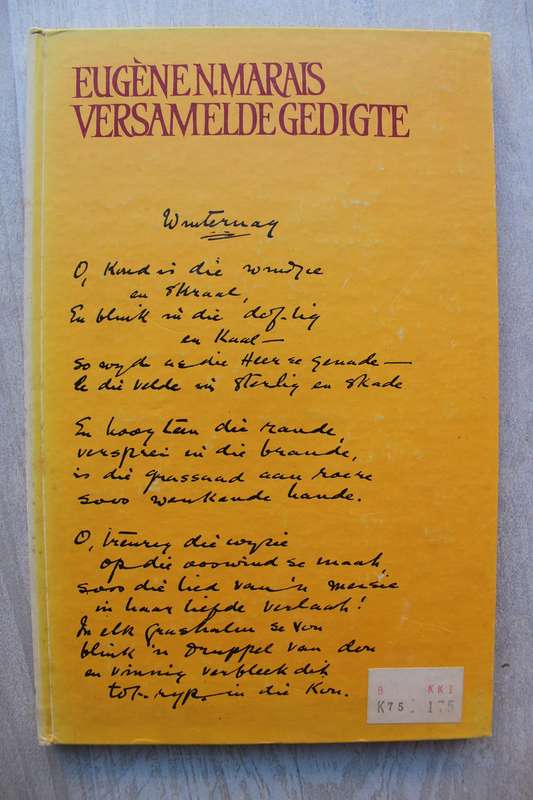 EUGÈNE N. MARAIS
VERSAMELDE GEDIGTE
Winternag
O, Koud is die windjie
en skraal,
En blink in die dof-lig
en Kaal —
so wyd as die Heer se genade —
lê die velde in sterlig en skade
En hoog teen die rande,
versprei in die brande,
is die grassaad aan roere
soos wenkende hande.
O, treurig die wysie
op die ooswind se maat,
soos die lied van 'n meisie
in haar liefde verlaat!
In elk grashalm se vou
blink 'n druppel van dou
en vinnig verbleek dit
tot ryp in die Kou.
B KKI
K75. 175